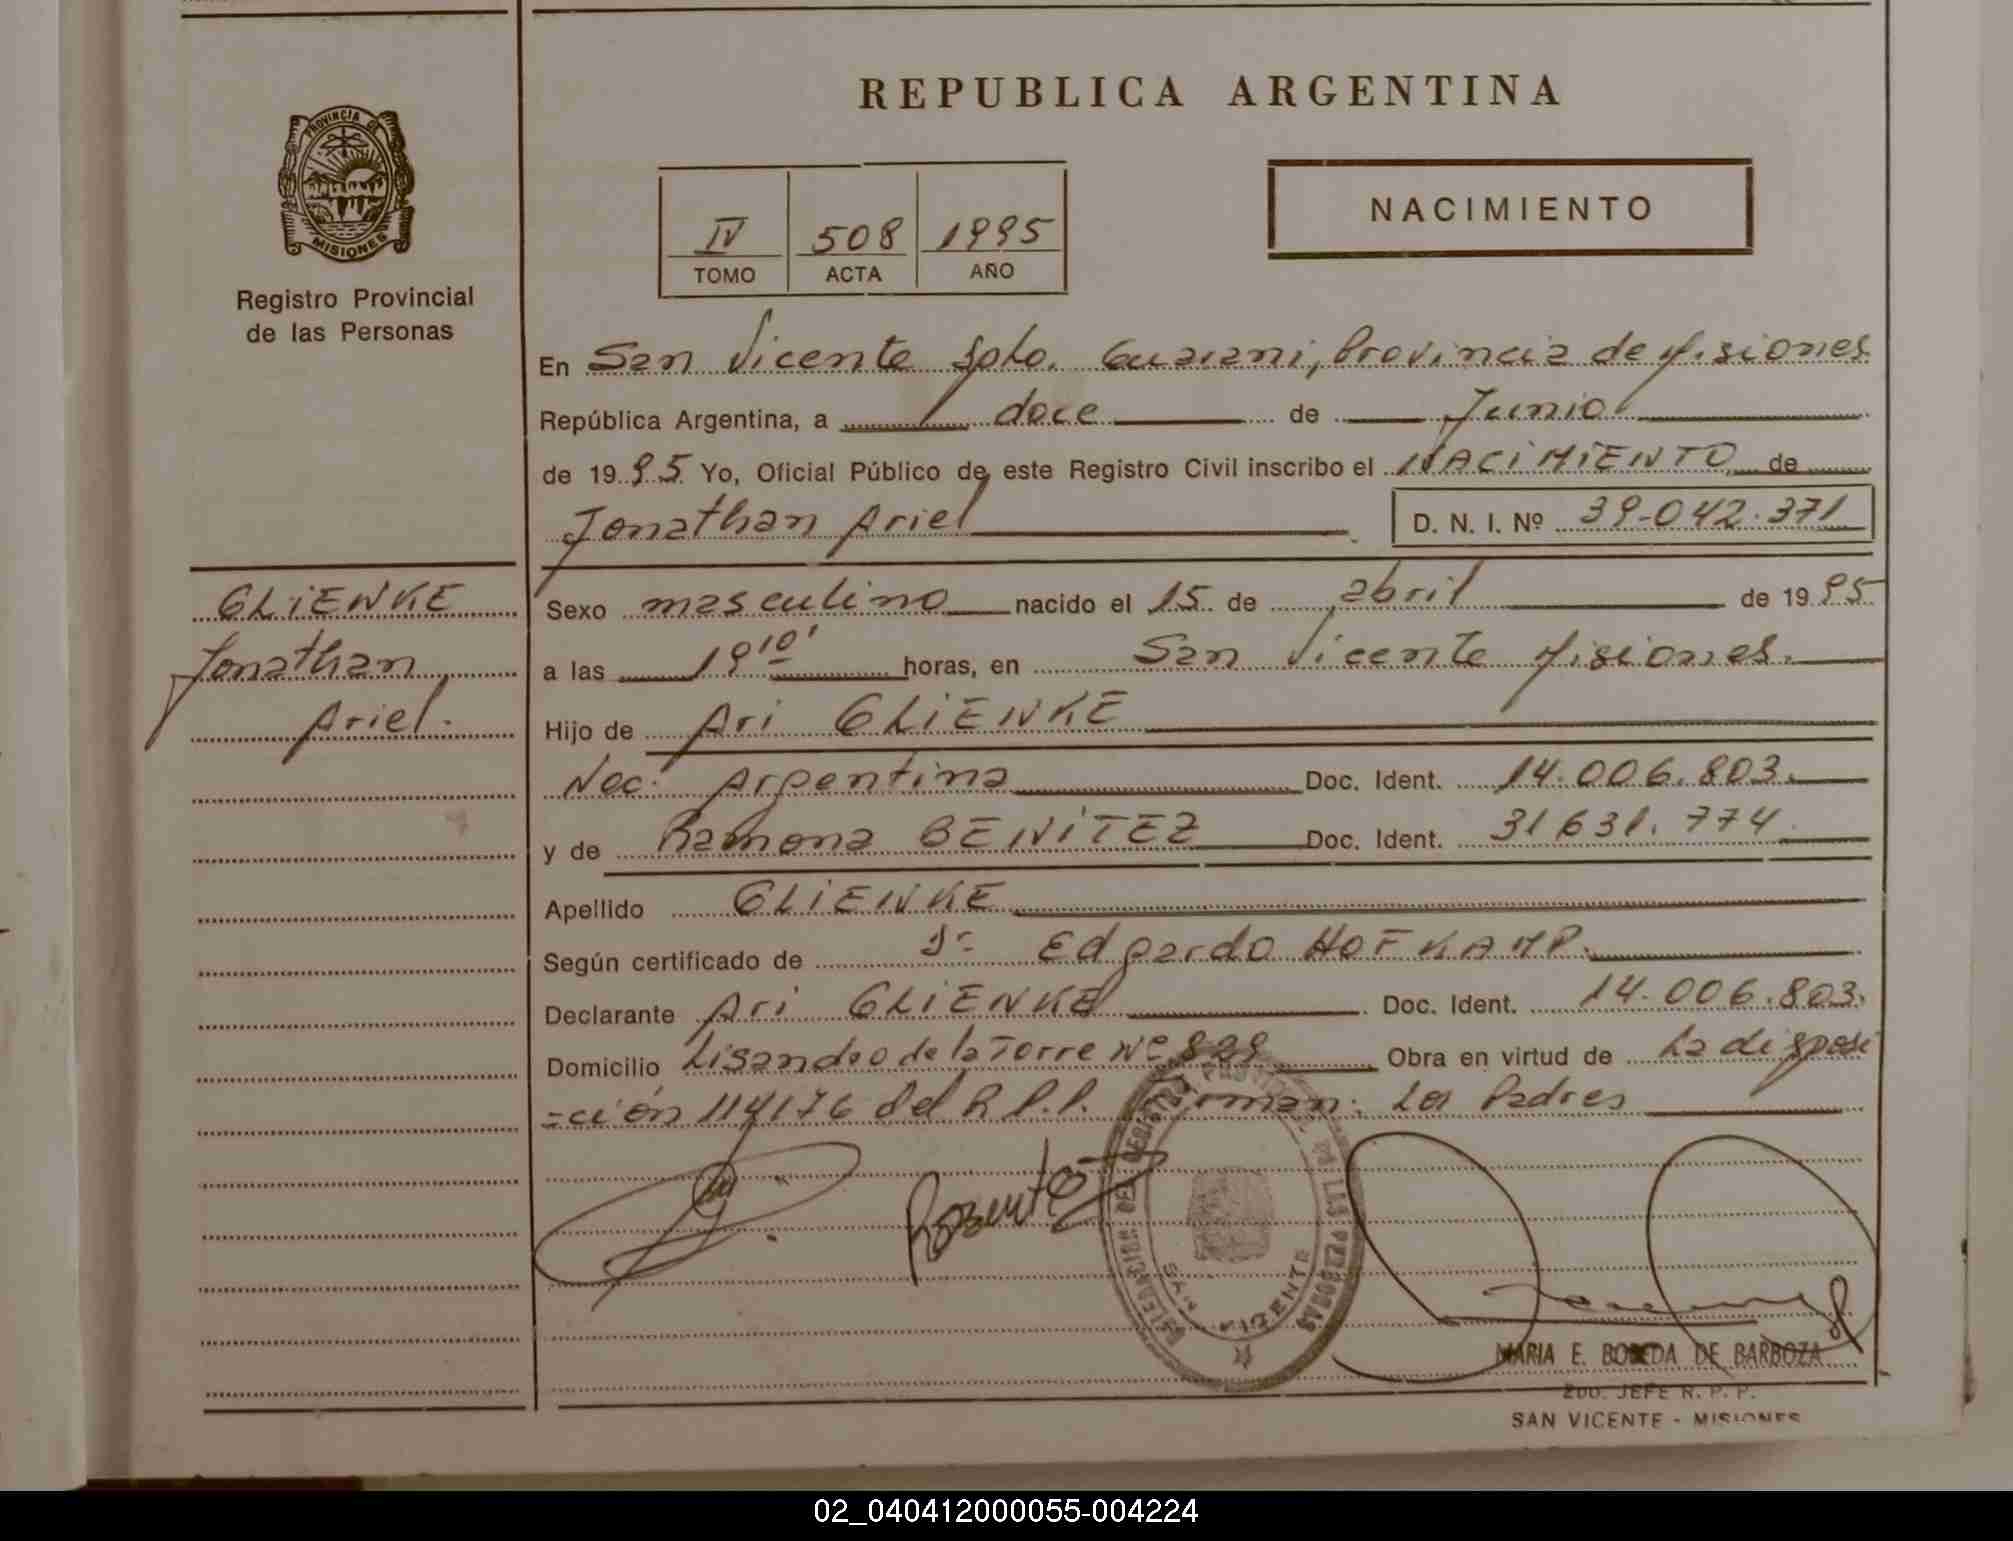 REPUBLICA ARGENTINA
PROVINCIA DE
MISIONES
Registro Provincial
de las Personas
IV 508 1995
TOMO ACTA AÑO
NACIMIENTO
En San Vicente Dpto. Guarani, Provincia de Misiones
República Argentina, a doce de Junio
de 1995 Yo, Oficial Público de este Registro Civil inscribo el NACIMIENTO de
Jonathan Ariel D. N. I. Nº 39-042.371
GLIENKE
Jonathan
Ariel.
Sexo masculino nacido el 15 de abril de 1995
a las 19 10' horas, en San Vicente Misiones.
Hijo de Ari GLIENKE
Nac. Argentina Doc. Ident. 14.006.803.
y de Ramona BENITEZ Doc. Ident. 31631.774
Apellido GLIENKE
Según certificado de Dr Edgardo HOFKAMP.
Declarante Ari GLIENKE Doc. Ident. 14.006.803.
Domicilio Lisandro de la Torre Nº 829 Obra en virtud de La disposi
=ción 114176 del R P.P. Firman: Los Padres
DELEGACION DEL REGISTRO PROVINCIAL DE LAS PERSONAS
SAN VICENTE
MARIA E. DE BARBOZA
2do. JEFE R. P. P.
SAN VICENTE - MISIONES
02_040412000055-004224